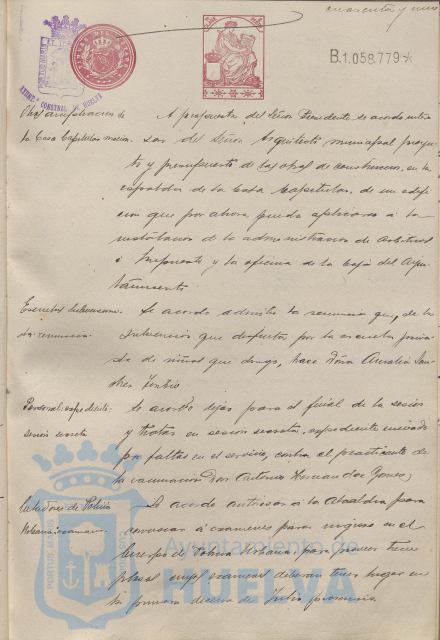 cuarenta y uno
B.1.058.779
AYUNT.º CONSTNAL. DE HUELVA
Obras ampliacion de la Casa Capitular
A propuesta del Señor Presidente se acordó
del Señor Arquitecto municipal proyec-
to y presupuesto de las obras de construccion, en la
espalda de la Casa Capitular, de un edifi-
cio que por ahora pueda aplicarse á la
instalacion de la administracion de Arbitrios
é Impuestos y la oficina de la Caja del Ayun-
tamiento.
Escuelas
renuncia.
Se acordó admitir la renuncia que, de la
subvencion que disfruta por la escuela priva-
da de niñas que dirige, hace Doña Amalia San-
chez Toribio
Personal: expediente:
sesion secreta
Se acordó dejar para el final de la sesion
y tratar en sesion secreta, expediente incoado
por faltas en el servicio, contra el practicante de
la vacunacion Don Antonio Hernandez Gomez;
Celadores de Policia
Urbana: examenes
Se acordó autorizar á la Alcaldia para
convocar á examenes para ingreso en el
Cuerpo de Policia Urbana, para proveer trece
plazas, cuyos examenes deberan tener lugar en
la primera decena de Julio proximo
Ayuntamiento de
HUELVA
PORTUS MARIS